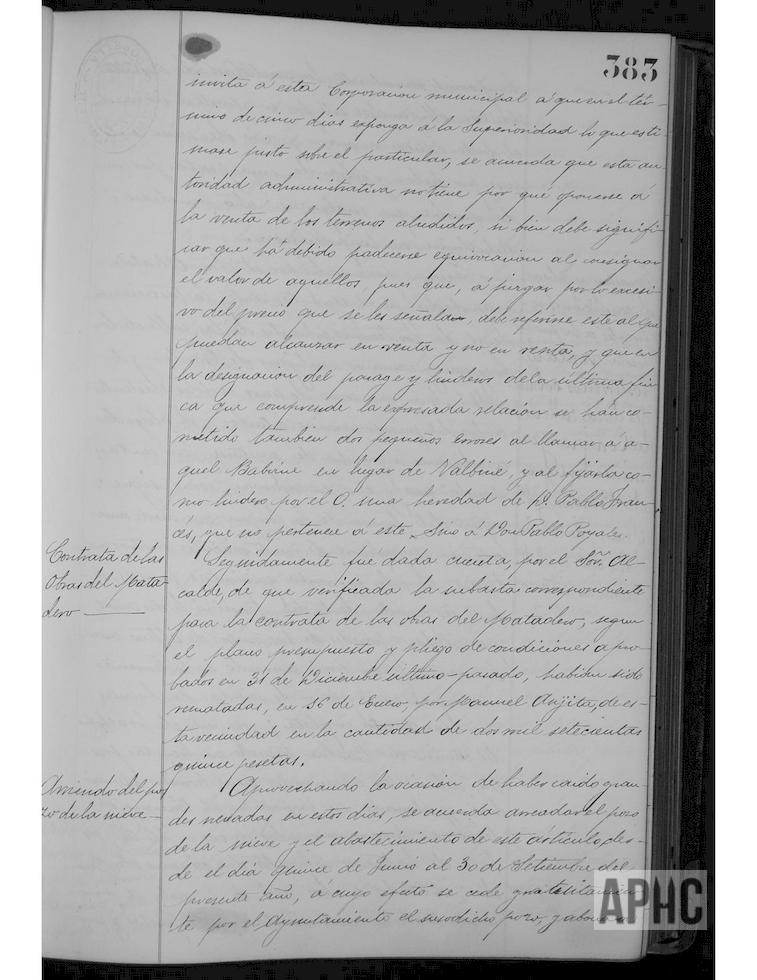 383
invita á esta Corporación municipal á que en el tér-
mino de cinco dias exponga á la Superioridad lo que esti-
mase justo sobre el particular, se acuerda que esta au-
toridad administrativa no tiene por qué oponerse á
la venta de los terrenos aludidos, si bien debe signifi-
car que há debido padecerse equivocacion al consignar
el valor de aquellos, pues que, á juzgar por lo excesi-
vo del precio que se les señala, debe referirse este al que
puedan alcanzar en venta y no en renta, y que en
la designacion del parage y linderos de la última fin-
ca que comprende la expresada relacion se han co-
metido tambien dos pequeños errores al llamar á a-
quel Babiné en lugar de Valbiné y al fijarla co-
mo lindero por el O. una heredad de D. Pablo Fran-
cés, que no pertenece á este, Sino á Don Pablo Royales.
Contrata de las
Obras del Mata-
dero
Seguidamente fué dada cuenta, por el Señ. Al-
calde, de que verificada la subasta correspondiente
para la contrata de las obras del Matadero, segun
el plano, presupuesto y pliego de condiciones apro-
bados en 31 de Diciembre último pasado, habian sido
rematadas, en 16 de Enero, por Manuel de es-
ta vecindad en la cantidad de dos mil setecientas
quince pesetas.
Arriendo del po-
zo de la nieve
Aprovechando la ocasión de haber caido gran-
des nevadas en estos dias, se acuerda arrendar el pozo
de la nieve y el abastecimiento de este artículo, des-
de el dia quince de Junio al 30 de Setiembre del
presente año, á cuyo efecto se cede gratuitamen-
te por el Ayuntamiento el susodicho pozo, y
APHC